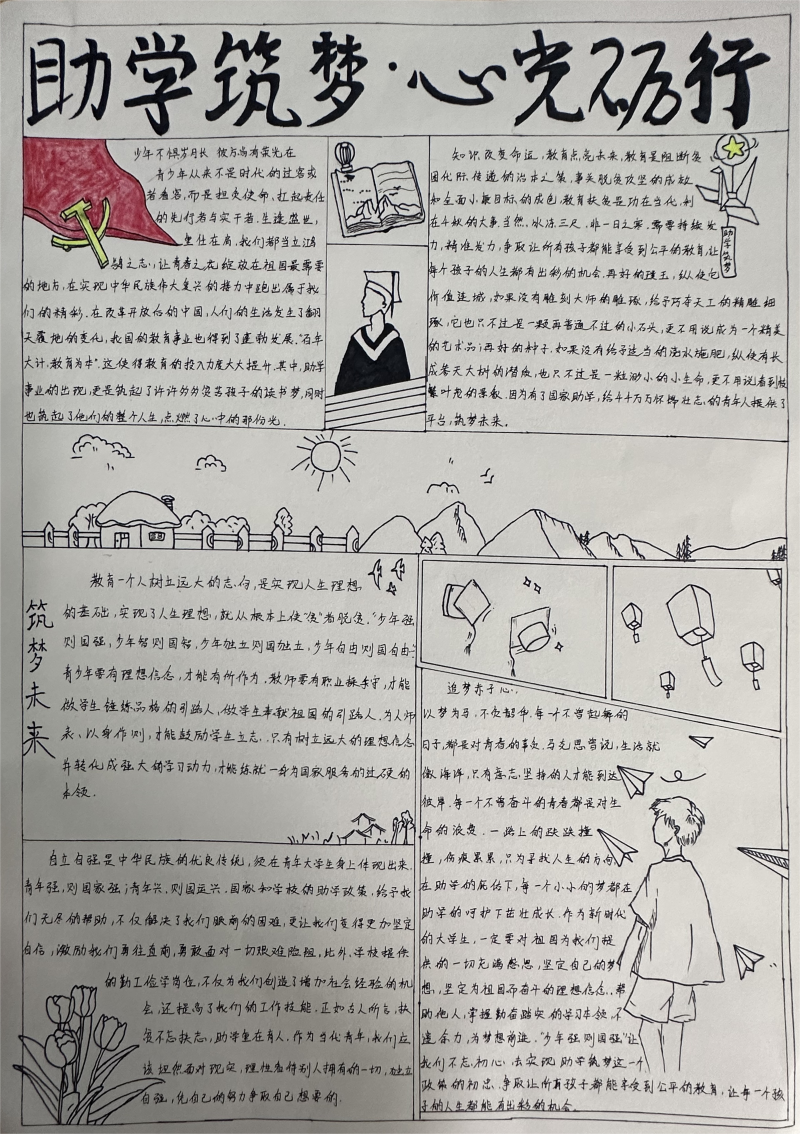 助学筑梦·心党砺行
少年不惧岁月长 彼方尚有荣光在
青少年从来不是时代的过客或
者看客,而是担负使命,扛起责任
的先行者与实干者.生逢盛世,
重任在肩,我们都当立鸿
鹄之志,让青春之花绽放在祖国最需要
的地方,在实现中华民族伟大复兴的接力中跑出属于我
们的精彩.在改革开放后的中国,人们的生活发生了翻
天覆地的变化,我国的教育事业也得到了蓬勃发展,“百年
大计,教育为本”.这使得教育的投入力度大大提升.其中,助学
事业的出现,更是筑起了许许多多贫苦孩子的读书梦,同时
也筑起了他们的整个人生,点燃了心中的那份光.
知识改变命运,教育点亮未来,教育是阻断贫
困代际传递的治本之策,事关脱贫攻坚的成效
和全面小康目标的成色.教育扶贫是功在当代,利
在千秋的大事.当然,冰冻三尺,非一日之寒.需要持续发
力,精准发力,争取让所有孩子都能享受到公平的教育,让
每个孩子的人生都有出彩的机会.再好的璞玉,纵使它
价值连城,如果没有雕刻大师的雕琢,给予巧夺天工的精雕细
琢,它也只不过是一颗再普通不过的小石头,更不用说成为一个精美
的艺术品;再好的种子.如果没有给予适当的浇水施肥,纵使有长
成苍天大树的潜质,也只不过是一粒渺小的小生命,更不用说看到枝
繁叶茂的景象.因为有了国家助学,给千千万万怀揣壮志,的青年人提供了
平台,筑梦未来.
助学筑梦
筑梦未来
教育一个人树立远大的志向,是实现人生理想
的基础,实现了人生理想,就从根本上使“贫”者脱贫.“少年强
则国强,少年智则国智,少年独立则国独立,少年自由则国自由.”
青少年要有理想信念,才能有所作为.教师要有职业操守,才能
做学生锤炼品格的引路人,做学生奉献祖国的引路人.为人师
表、以身作则,才能鼓励学生立志.只有树立远大的理想信念
并转化成强大的学习动力,才能练就一身为国家服务的过硬的
本领.
追梦赤子心.
以梦为马,不负韶华.每一个不曾起舞的
日子,都是对青春的辜负.马克思曾说,生活就
像海洋,只有意志坚强的人才能到达
彼岸.每一个不曾奋斗的青春都是对生
命的浪费.一路上的跌跌撞
撞,伤痕累累,只为寻找人生的方向.
在助学的庇佑下,每一个小小的梦都在
助学的呵护下茁壮成长.作为新时代
的大学生,一定要对祖国为我们提
供的一切充满感恩,坚定自己的梦
想,坚定为祖国而奋斗的理想信念、帮
助他人,掌握勤奋踏实的学习本领,不
遗余力,为梦想前进.“少年强则国强”让
我们不忘初心.去实现助学筑梦这一个
政策的初衷.争取让所有孩子都能享受到公平的教育,让每一个孩
子的人生都能有出彩的机会.
自立自强是中华民族的优良传统,须在青年大学生身上体现出来.
青年强,则国家强;青年兴,则国运兴.国家和学校的助学政策,给予我
们无尽的帮助,不仅解决了我们眼前的困难,更让我们变得更加坚定
自信,激励我们勇往直前,勇敢面对一切艰难险阻,此外,学校提供
的勤工俭学岗位,不仅为我们创造了增加社会经验的机
会,还提高了我们的工作技能.正如古人所言,扶
贫不忘扶志,助学重在育人.作为当代青年,我们应
该坦然面对现实,理性看待别人拥有的一切,独立
自强,凭自己的努力争取自己想要的.